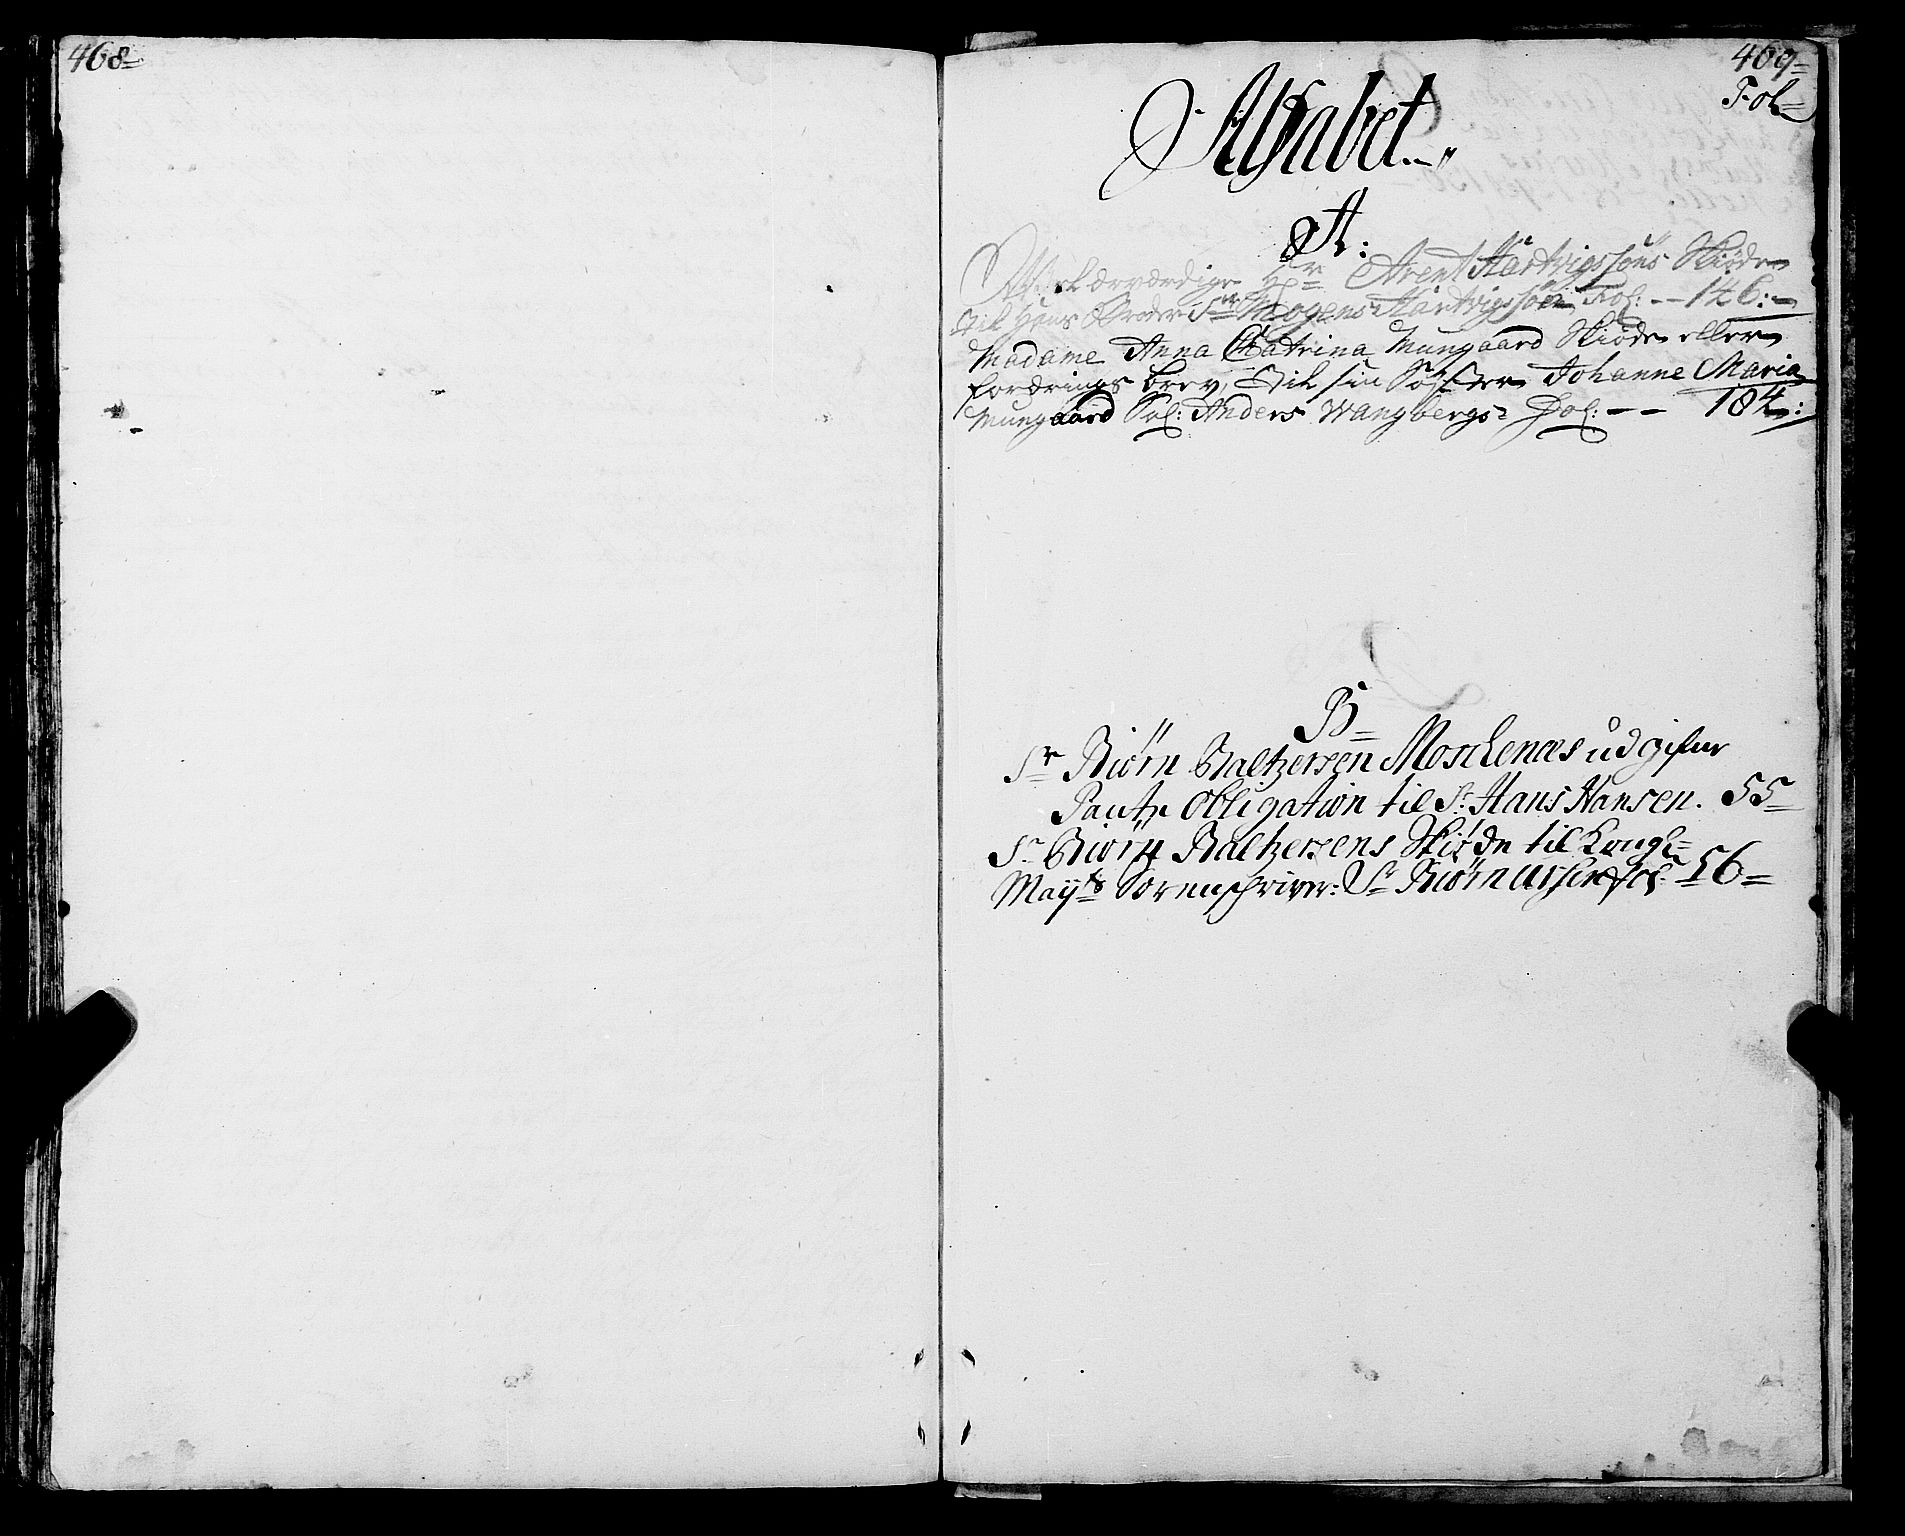 468=
469=
Fol=
Alfabet
A:
Vel ærværdige Hr Arent Hartvigssøns Skiøde
til Hans Broder Sr Mogens Hartvigssøn, Fol: -- 146:=
Madame Anna Catrina Mungaard Skiøde eller
fordrings brev, til sin Søster Johanne Maria
Mungaard Sal: Anders Wangbergs Fol: -- 184:
B=
Sr Biørn Baltzersen Moschenæs udgifne
Pante Obligation til Sr Hans Hansen. 55=
Sr Biørn Baltzersens Skiøde til Kongl=
Mayts Sorenschriver: Sr Biørn fol: 56=